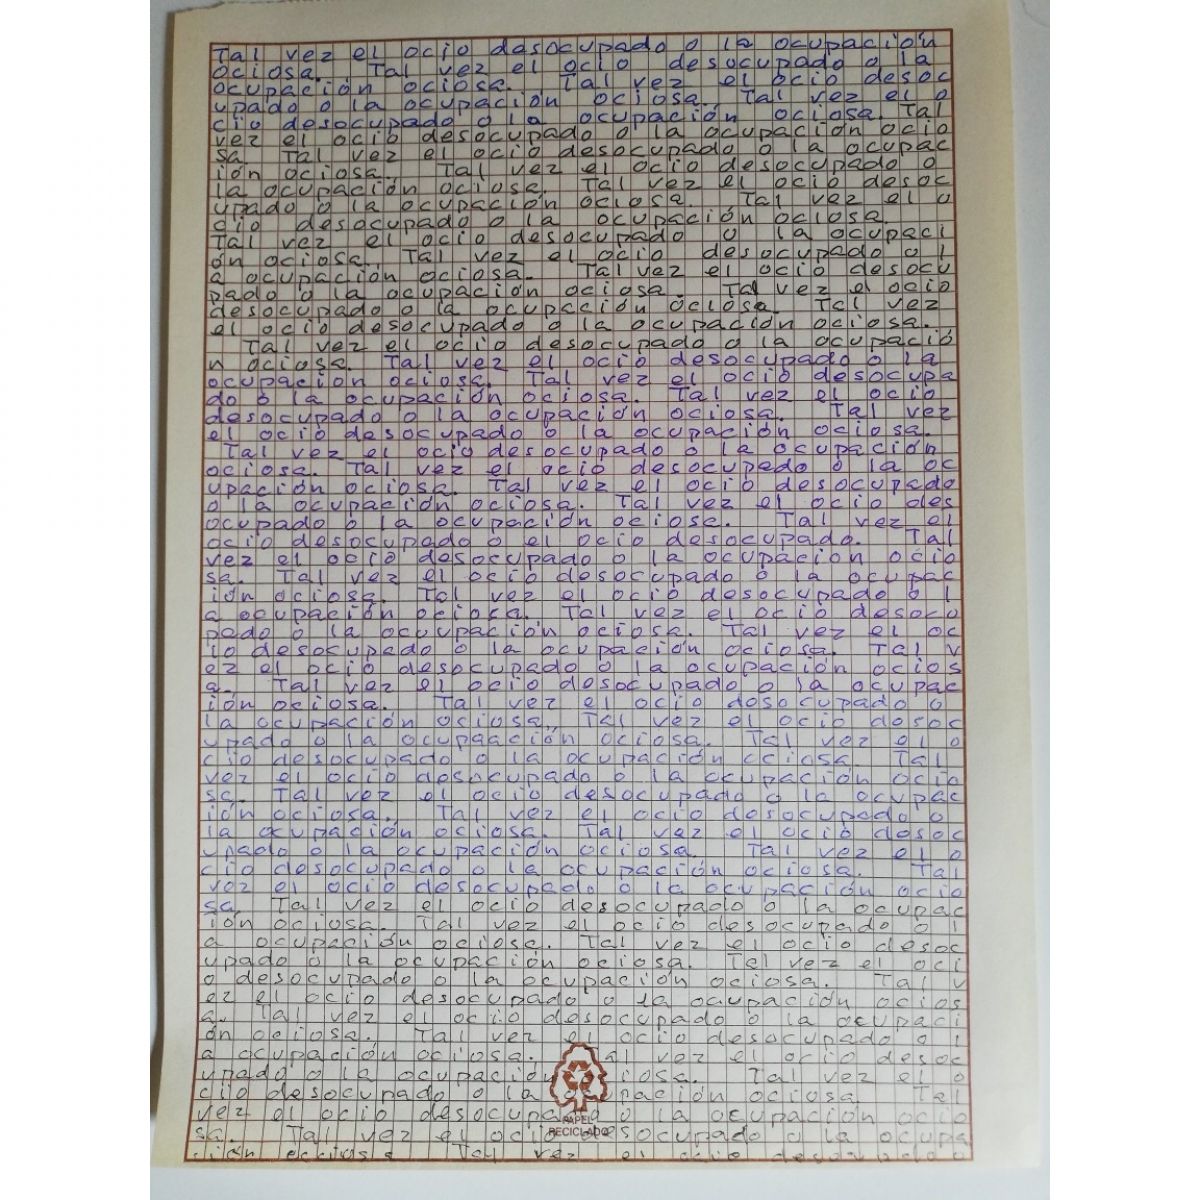 Tal vez el ocio desocupado o la ocupación
ociosa. Tal vez el ocio desocupado o la
ocupación ociosa. Tal vez el ocio desoc
upado o la ocupación ociosa. Tal vez el o
cio desocupado o la ocupación ociosa. Tal
vez el ocio desocupado o la ocupación ocio
sa. Tal vez el ocio desocupado o la ocupac
ión ociosa. Tal vez el ocio desocupado o
la ocupación ociosa. Tal vez el ocio desoc
upado o la ocupación ociosa. Tal vez el o
cio desocupado o la ocupación ociosa.
Tal vez el ocio desocupado o la ocupaci
ón ociosa. Tal vez el ocio desocupado o l
a ocupación ociosa. Tal vez el ocio desocu
pado o la ocupación ociosa. Tal vez el ocio
desocupado o la ocupación ociosa. Tal vez
el ocio desocupado o la ocupación ociosa.
Tal vez el ocio desocupado o la ocupació
n ociosa. Tal vez el ocio desocupado o la
ocupación ociosa. Tal vez el ocio desocupa
do o la ocupación ociosa. Tal vez el ocio
desocupado o la ocupación ociosa. Tal vez
el ocio desocupado o la ocupación ociosa.
Tal vez el ocio desocupado o la ocupación
ociosa. Tal vez el ocio desocupado o la oc
upación ociosa. Tal vez el ocio desocupado
o la ocupación ociosa. Tal vez el ocio des
ocupado o la ocupación ociosa. Tal vez el
ocio desocupado o el ocio desocupado. Tal
vez el ocio desocupado o la ocupación ocio
sa. Tal vez el ocio desocupado o la ocupac
ión ociosa. Tal vez el ocio desocupado o l
a ocupación ociosa. Tal vez el ocio desocu
pado o la ocupación ociosa. Tal vez el oc
io desocupado o la ocupación ociosa. Tal v
ez el ocio desocupado o la ocupación ocios
a. Tal vez el ocio desocupado o la ocupac
ión ociosa. Tal vez el ocio desocupado o
la ocupación ociosa. Tal vez el ocio desoc
upado o la ocupaación ociosa. Tal vez el o
cio desocupado o la ocupación ociosa. Tal
vez el ocio desocupado o la ocupación ocio
sa. Tal vez el ocio desocupado o la ocupac
ión ociosa. Tal vez el ocio desocupado o
la ocupación ociosa. Tal vez el ocio desoc
upado o la ocupación ociosa. Tal vez el o
cio desocupado o la ocupación ociosa. Tal
vez el ocio desocupado o la ocupación ocio
sa. Tal vez el ocio desocupado o la ocupac
ión ociosa. Tal vez el ocio desocupado o l
a ocupación ociosa. Tal vez el ocio desoc
upado o la ocupación ociosa. Tal vez el oci
o desocupado o la ocupación ociosa. Tal v
ez el ocio desocupado o la ocupación ocios
a. Tal vez el ocio desocupado o la ocupaci
ón ociosa. Tal vez el ocio desocupado o l
a ocupación ociosa. Tal vez el ocio desoc
upado o la ocupación ociosa. Tal vez el o
cio desocupado o la ocupación ociosa. Tal
vez el ocio desocupado o la ocupación ocio
PAPEL
RECICLADO
sa. Tal vez el ocio desocupado o la ocupa
ción ociosa. Tal vez el ocio desocupado